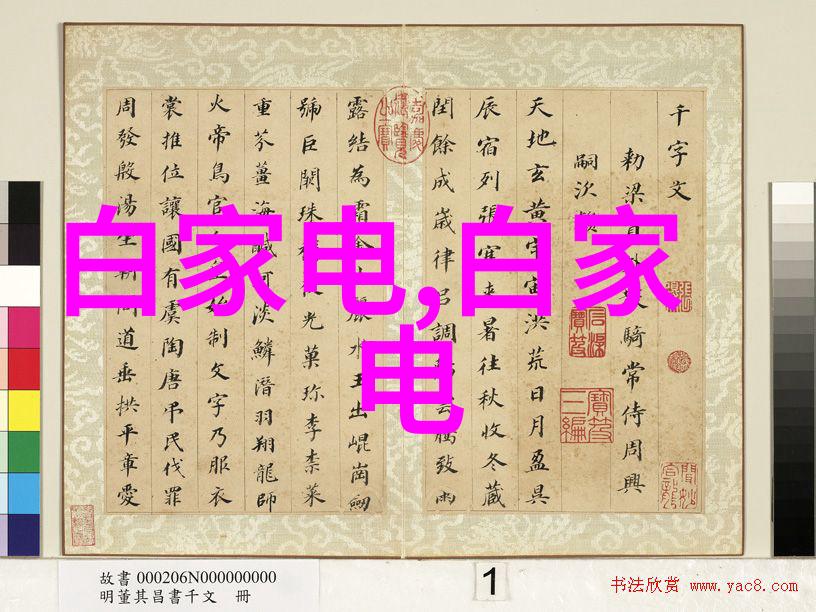 千字文
勅梁騎常侍周興
嗣次
天地玄黃宇宙洪荒日月盈昃
辰宿列張寒来暑往秋收冬藏
閏餘成歲律吕調雲騰致雨
露結為霜金水玉出崐崗劒
號巨闕珠光菓珍李柰菜
重芥薑海鹹河淡鱗潛羽翔龍師
火帝鳥官始制文字乃服衣
裳推位讓國有虞陶唐弔民伐罪
周發殷湯坐朝問道垂拱平章愛
白家电,白家
电
故書 000206N000000000
明董其昌書千文 冊
1
书法欣赏 www.yac8.com